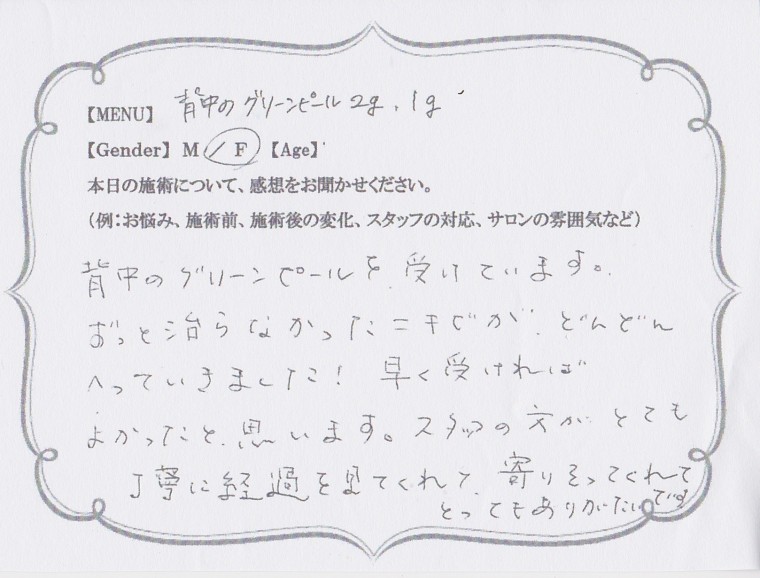 【MENU】 背中のグリーンピール 2g、1g
【Gender】 M / F 【Age】
本日の施術について、感想をお聞かせください。
（例：お悩み、施術前、施術後の変化、スタッフの対応、サロンの雰囲気など）
背中のグリーンピールを受けています。
ずっと治らなかったニキビが、どんどん
へっていきました！ 早く受ければ
よかったと思います。スタッフの方がとても
丁寧に経過を見てくれて、寄りそってくれて
とってもありがたいです